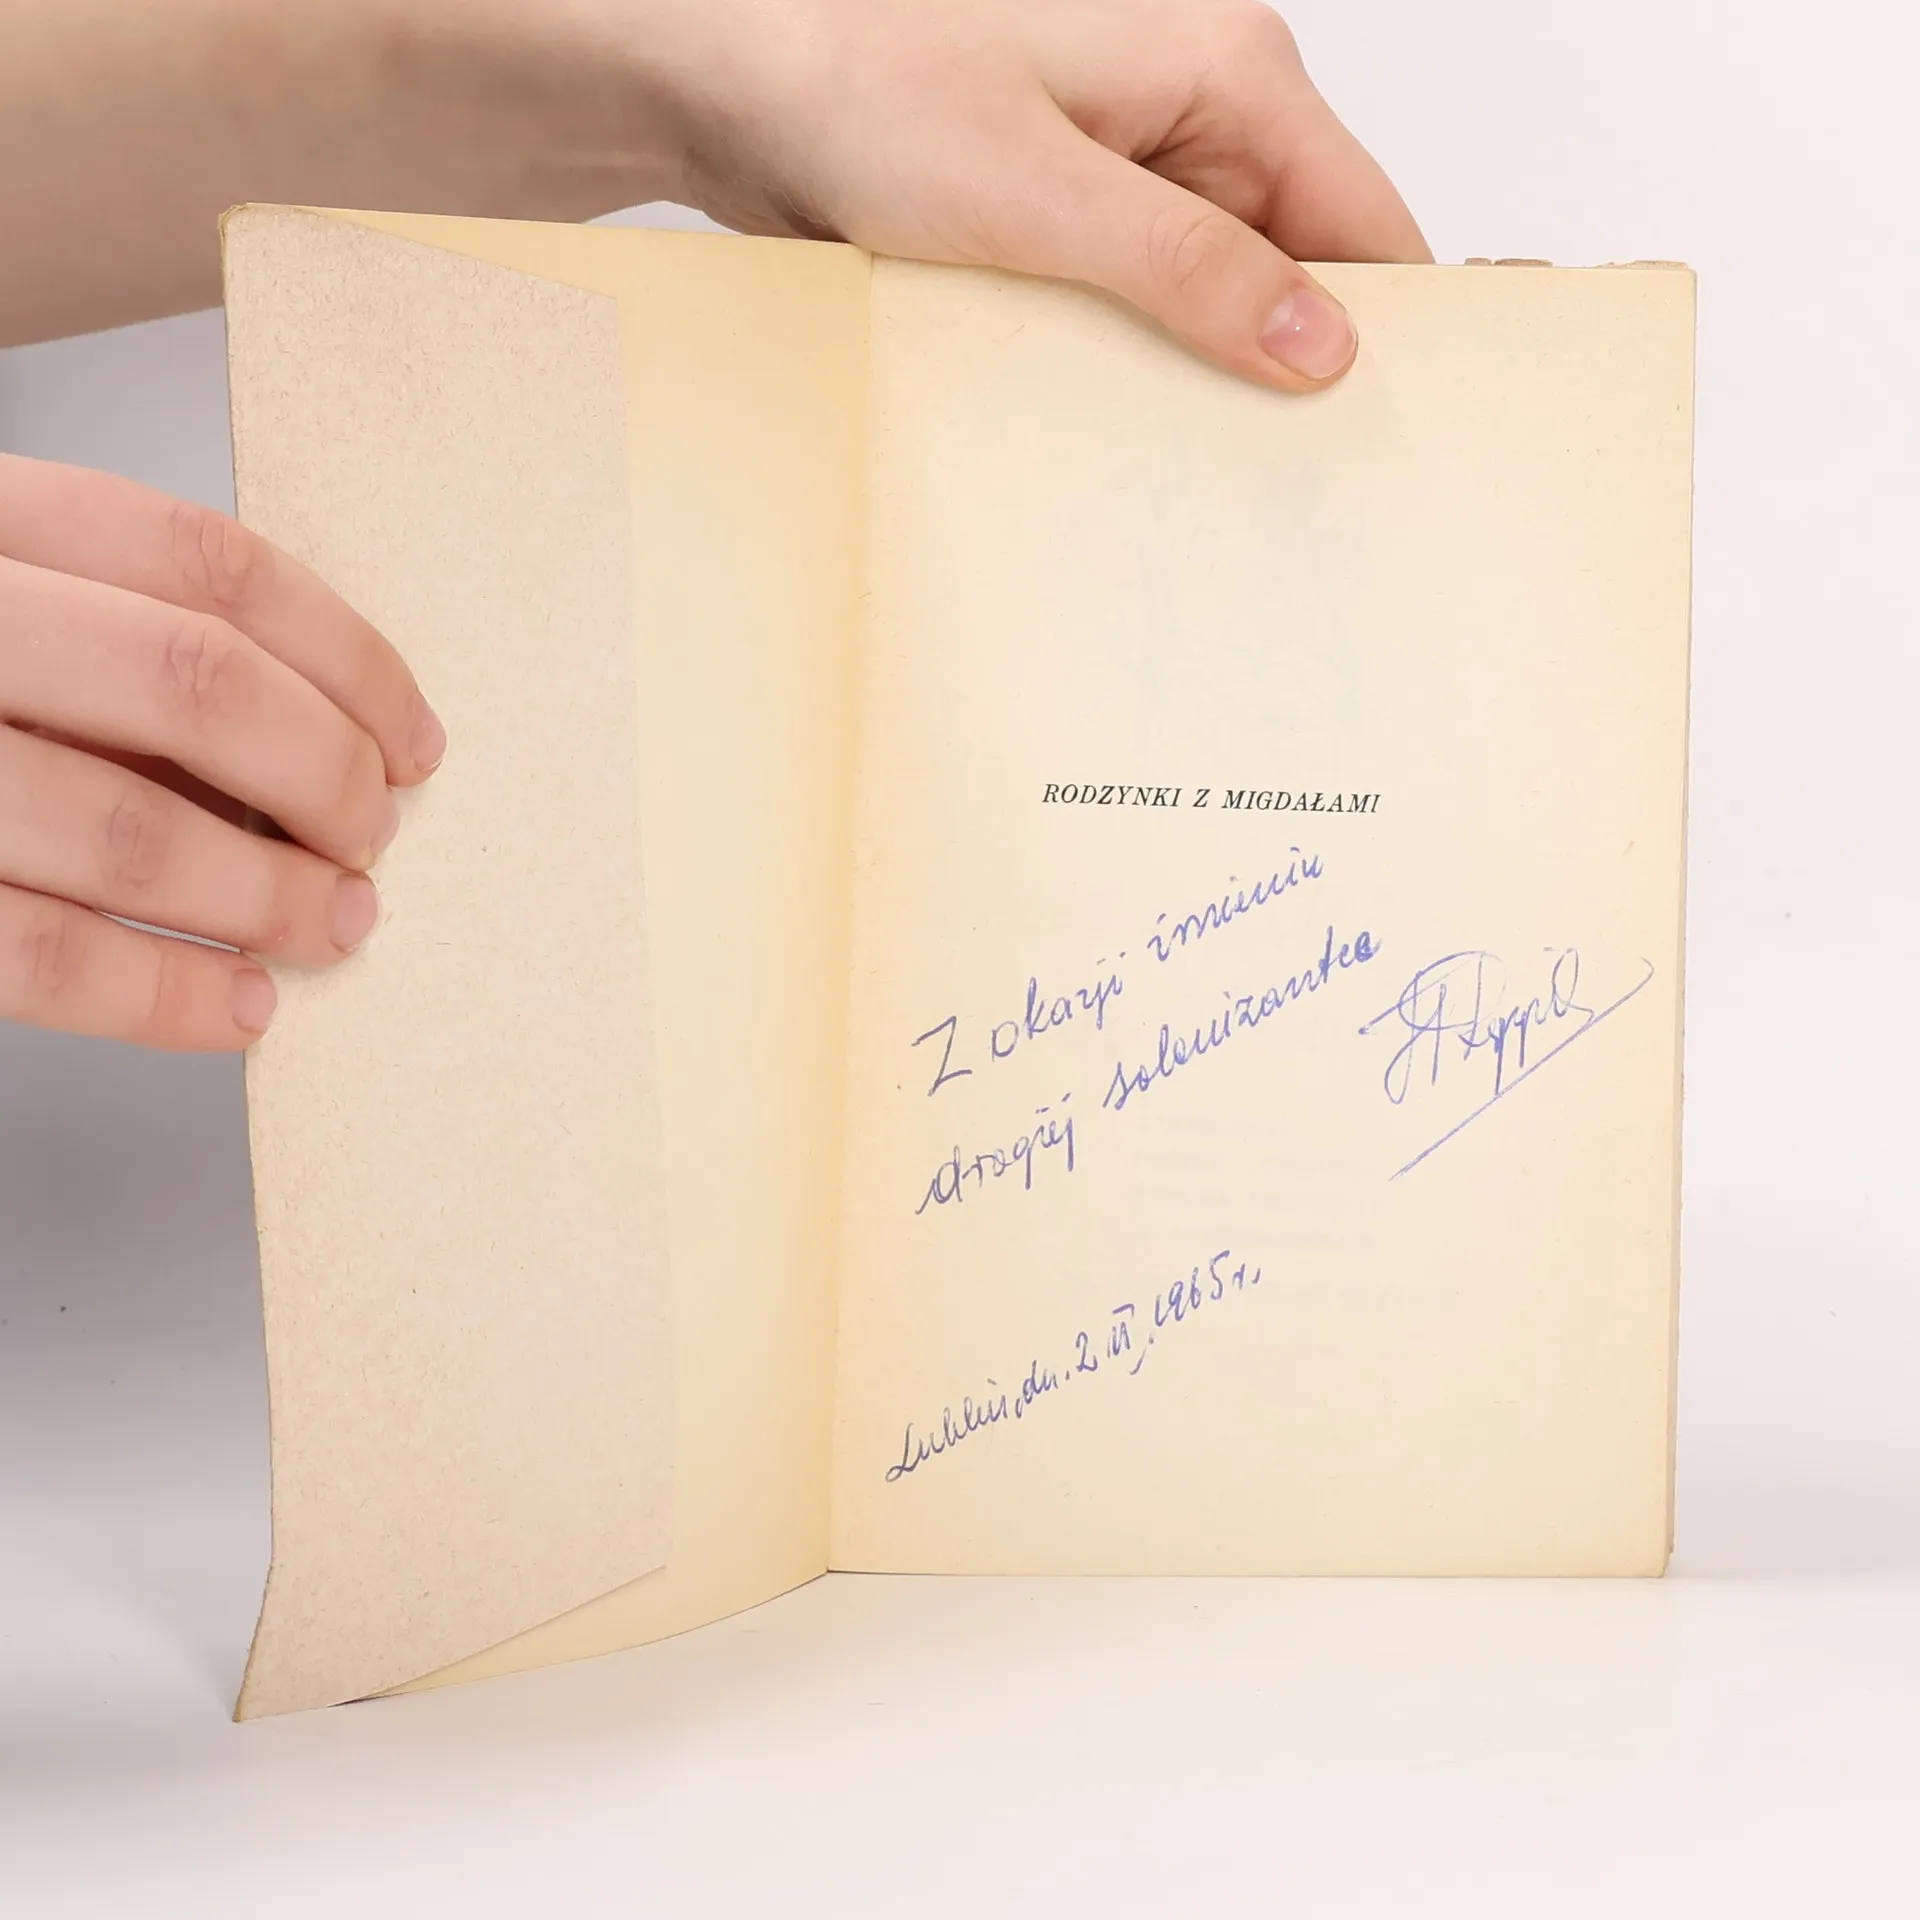 RODZYNKI Z MIGDAŁAMI
Z okazji imienin
drogiej solenizantce
Lublin, dn. 2 II 1965 r.